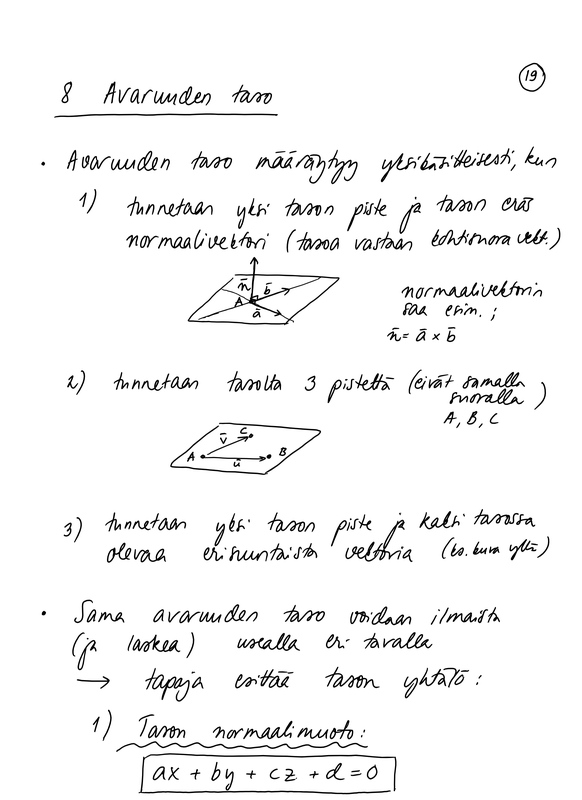 19
8 Avaruuden taso
• Avaruuden taso määräytyy yksikäsitteisesti, kun
1) tunnetaan yksi tason piste ja tason eräs
normaalivektori (tasoa vastaan kohtisuora vekt.)
n̄ b̄
A
ā
normaalivektorin
saa esim.;
n̄ = ā × b̄
2) tunnetaan tasolta 3 pistettä (eivät samalla
suoralla)
A, B, C
C
v̄
A B
ū
3) tunnetaan yksi tason piste ja kaksi tasossa
olevaa erisuuntaista vektoria (ks. kuva yllä)
• Sama avaruuden taso voidaan ilmaista
(ja laskea) usealla eri tavalla
→ tapoja esittää tason yhtälö:
1) Tason normaalimuoto:
ax + by + cz + d = 0